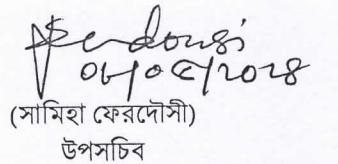 ferdousi
০৮/০৫/২০২৪
(সামিহা ফেরদৌসী)
উপসচিব